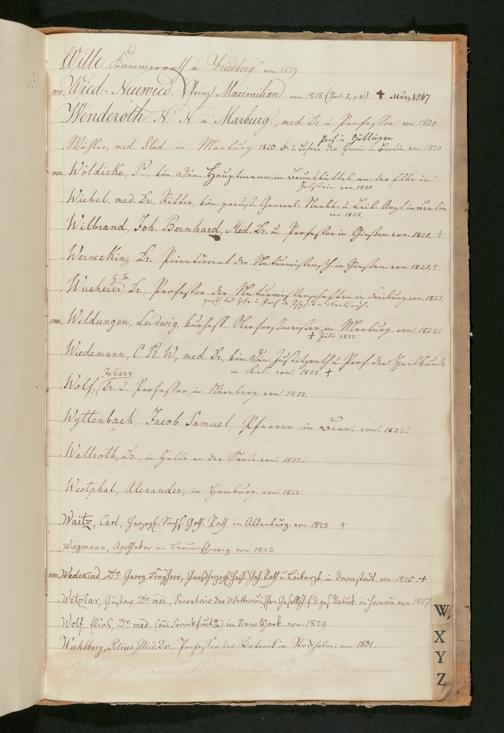 Wille Kammerrath in Friedberg von 1819
von Wied-Neuwied (Prinz Maximilian von 1818 † März 1867
Wenderoth H. H. in Marburg, med. Dr. u. Professor von 1820
Prof. in Göttingen
Wöhler, med. Stud. in Marburg 1820. Dr. u. Lehrer der in Berlin von 1820
von Wöldicke, P., kön. dän. Hauptmann in Brunsbüttel an der Elbe in
Holstein von 1820.
Wiebel, med. Dr., Ritter, kön. preuss. General Stabs u. Leib Arzt in Berlin
von 1821.
Wilbrand, Joh. Bernhard, Med. Dr. u. Professor in Giessen von 1821. †
Wernecking Dr. Privatdocent der in Giessen von 1821. †
Wucherer, Dr., Professor der Naturwissenschaften in Freiburg von 1821.
von Wildungen, Ludwig, kurhess. Oberforstmeister in Marburg von 1822
† Juli 1822.
Wiedemann, C R W, med. Dr. kön. dän. Justizrath u. Prof. der Heilkunde
in Kiel von 1822 †
Wolf, Dr. u. Professor in Nürnberg von 1822.
Wyttenbach, Jacob Samuel, Pfarrer in Bern. von 1822.
Wallroth, Dr., in Halle an der Saale von 1822.
Westphal, Alexander, in Hamburg von 1822
Waitz, Carl, Herzogl. Sächs. Goth. Rath in Altenburg von 1823. †
Wiegmann, Apotheker in Braunschweig von 1823.
von Wedekind, Dr. Georg Freyherr, Grossherzogl. Hess. Geh. Rath u. Leibarzt in Darmstadt. von 1825. †
Wetzlar, Gustav, Dr. med., Secretair der Wetterauischen Gesellsch. f. d. ges. Naturk. in Hanau. von 1827
Wolf, Elias, Dr. med. (aus Frankfurt) in New York. von 1829
Wahlberg, Petrus Dr., Professor der Botanik in Stockholm. von 1831.
W
X
Y
Z